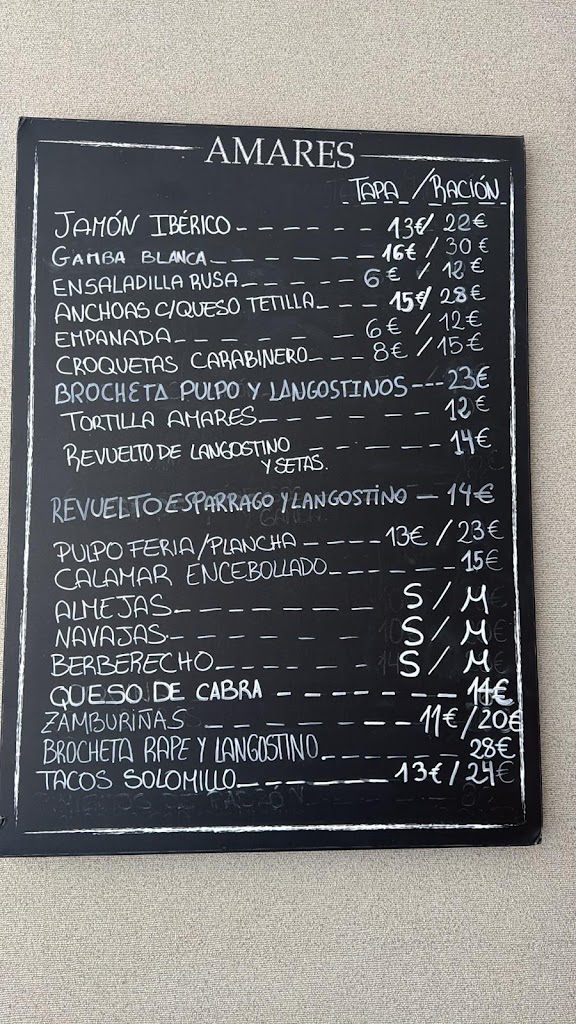 AMARES
TAPA / RACIÓN
JAMÓN IBÉRICO 13€ / 22€
GAMBA BLANCA 16€ / 30€
ENSALADILLA RUSA 6€ / 12€
ANCHOAS C/QUESO TETILLA 15€ / 28€
EMPANADA 6€ / 12€
CROQUETAS CARABINERO 8€ / 15€
BROCHETA PULPO Y LANGOSTINOS 23€
TORTILLA AMARES 12€
REVUELTO DE LANGOSTINO 14€
Y SETAS.
REVUELTO ESPARRAGO Y LANGOSTINO 14€
PULPO FERIA/PLANCHA 13€ / 23€
CALAMAR ENCEBOLLADO 15€
ALMEJAS S / M
NAVAJAS S / M
BERBERECHO S / M
QUESO DE CABRA 14€
ZAMBURIÑAS 11€ / 20€
BROCHETA RAPE Y LANGOSTINO 28€
TACOS SOLOMILLO 13€ / 24€